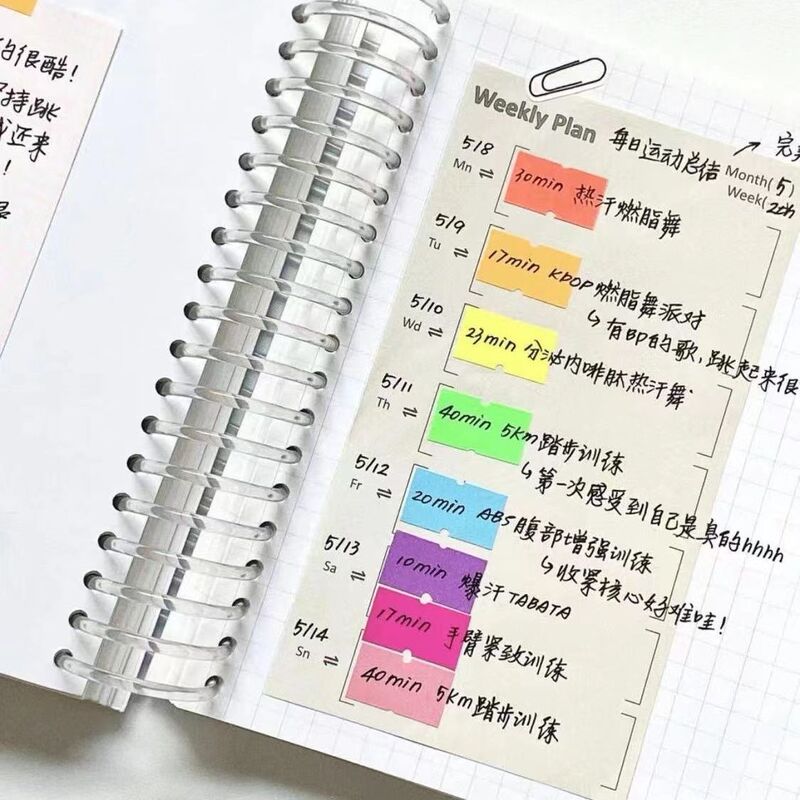 很酷！
持跳
还来
！
Weekly Plan 每日运动总结 → 完
Month(5)
Week(2th
5/8
Mn
30min 热汗燃脂舞
5/9
Tu
17min KPOP燃脂舞派对
↳有的歌，跳起来很
5/10
Wd
23min 分泌内啡肽热汗舞
5/11
Th
40min 5Km踏步训练
↳第一次感受到自己是真的hhhh
5/12
Fr
20min ABS腹部增强训练
↳收紧核心好难哇！
5/13
Sa
10min 爆汗TABATA
17min 手臂紧致训练
5/14
Sn
40min 5Km踏步训练